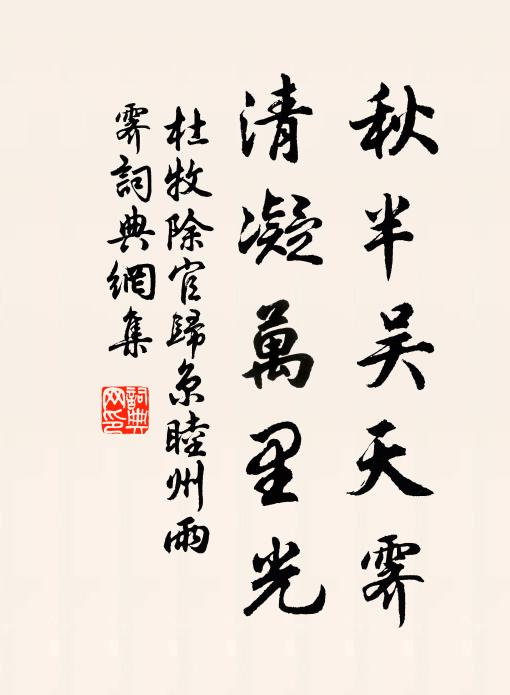 秋半吴天霽
清凝萬里光
杜牧除官歸京睦州雨
霽詞典網集
詞典网印